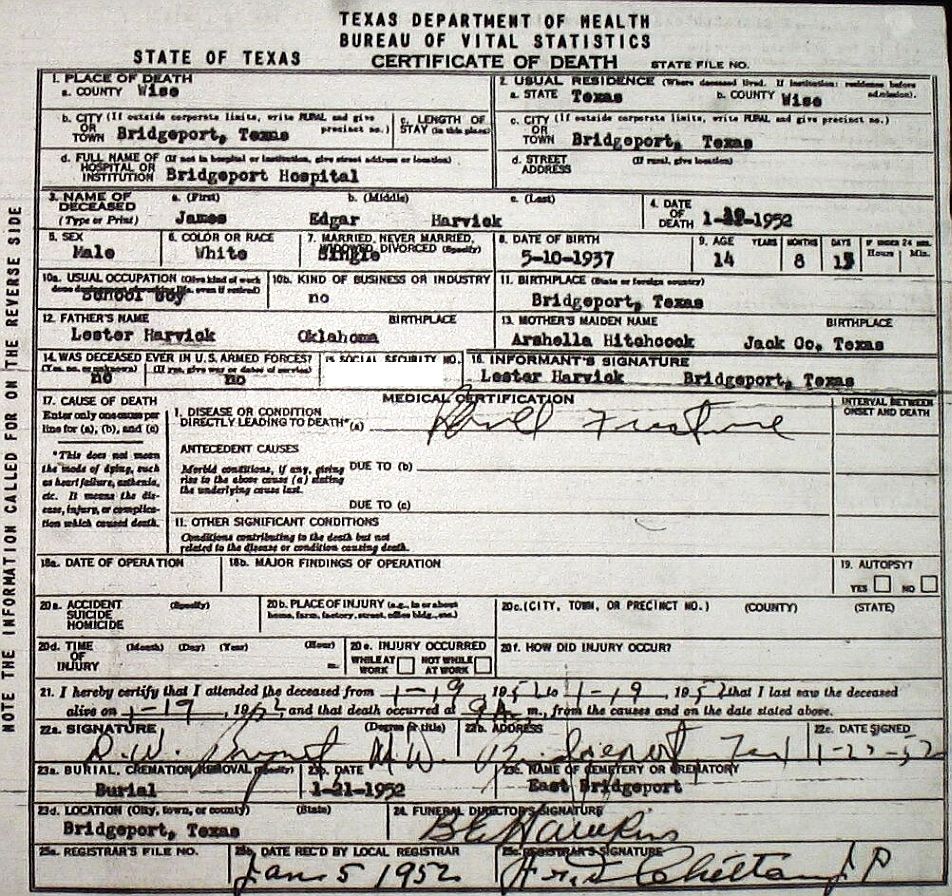 TEXAS DEPARTMENT OF HEALTH
BUREAU OF VITAL STATISTICS
STATE OF TEXAS
CERTIFICATE OF DEATH
STATE FILE NO.
NOTE THE INFORMATION CALLED FOR ON THE REVERSE SIDE
1. PLACE OF DEATH
a. COUNTY Wise
2. USUAL RESIDENCE (Where deceased lived. If institution: residence before admission).
a. STATE Texas b. COUNTY Wise
b. CITY (If outside corporate limits, write RURAL and give precinct no.)
OR
TOWN Bridgeport, Texas
c. LENGTH OF
STAY (in this place)
c. CITY (If outside corporate limits, write RURAL and give precinct no.)
OR
TOWN Bridgeport, Texas
d. FULL NAME OF (If not in hospital or institution, give street address or location)
HOSPITAL OR
INSTITUTION Bridgeport Hospital
d. STREET (If rural, give location)
ADDRESS
3. NAME OF DECEASED a. (First) b. (Middle) c. (Last)
(Type or Print) James Edgar Harvick
4. DATE
OF
DEATH 1-19-1952
5. SEX
Male
6. COLOR OR RACE
White
7. MARRIED, NEVER MARRIED,
WIDOWED, DIVORCED (Specify)
Single
8. DATE OF BIRTH
5-10-1937
9. AGE YEARS MONTHS DAYS IF UNDER 24 HRS. Hours Min.
14 8
10a. USUAL OCCUPATION (Give kind of work done during most of working life, even if retired)
School Boy
10b. KIND OF BUSINESS OR INDUSTRY
no
11. BIRTHPLACE (State or foreign country)
Bridgeport, Texas
12. FATHER'S NAME BIRTHPLACE
Lester Harvick Oklahoma
13. MOTHER'S MAIDEN NAME BIRTHPLACE
Arshella Hitchcock Jack Co, Texas
14. WAS DECEASED EVER IN U.S. ARMED FORCES?
(Yes, no, or unknown) (If yes, give war or dates of service)
no no
15 SOCIAL SECURITY NO.
16. INFORMANT'S SIGNATURE
Lester Harvick Bridgeport, Texas
MEDICAL CERTIFICATION
17. CAUSE OF DEATH
Enter only one cause per
line for (a), (b), and (c)
*This does not mean
the mode of dying, such
as heart failure, asthenia,
etc. It means the dis-
ease, injury, or complica-
tion which caused death.
1. DISEASE OR CONDITION
DIRECTLY LEADING TO DEATH*(a)
ANTECEDENT CAUSES
Morbid conditions, if any, giving
rise to the above cause (a) stating
the underlying cause last.
DUE TO (b)
DUE TO (c)
11. OTHER SIGNIFICANT CONDITIONS
Conditions contributing to the death but not
related to the disease or condition causing death.
INTERVAL BETWEEN
ONSET AND DEATH
18a. DATE OF OPERATION
18b. MAJOR FINDINGS OF OPERATION
19. AUTOPSY?
YES NO
20a. ACCIDENT (Specify)
SUICIDE
HOMICIDE
20b. PLACE OF INJURY (e.g., in or about
home, farm, factory, street, office bldg., etc.)
20c. (CITY, TOWN, OR PRECINCT NO.) (COUNTY) (STATE)
20d. TIME (Month) (Day) (Year) (Hour)
OF
INJURY m.
20e. INJURY OCCURRED
WHILE AT WORK NOT WHILE AT WORK
20f. HOW DID INJURY OCCUR?
21. I hereby certify that I attended the deceased from 1-19, 1952 to 1-19, 1952 that I last saw the deceased
alive on 1-19, 1952, and that death occurred at 9 A m., from the causes and on the date stated above.
22a. SIGNATURE (Degree or title)
D.W.
22b. ADDRESS
Bridgeport Tex
22c. DATE SIGNED
23a. BURIAL, CREMATION, REMOVAL (Specify)
Burial
23b. DATE
1-21-1952
23c. NAME OF CEMETERY OR CREMATORY
East Bridgeport
23d. LOCATION (City, town, or county) (State)
Bridgeport, Texas
24. FUNERAL DIRECTOR'S SIGNATURE
B E Hawkins
25a. REGISTRAR'S FILE NO.
25b. DATE REC'D BY LOCAL REGISTRAR
Jan 5 1952
25c. REGISTRAR'S SIGNATURE
J P